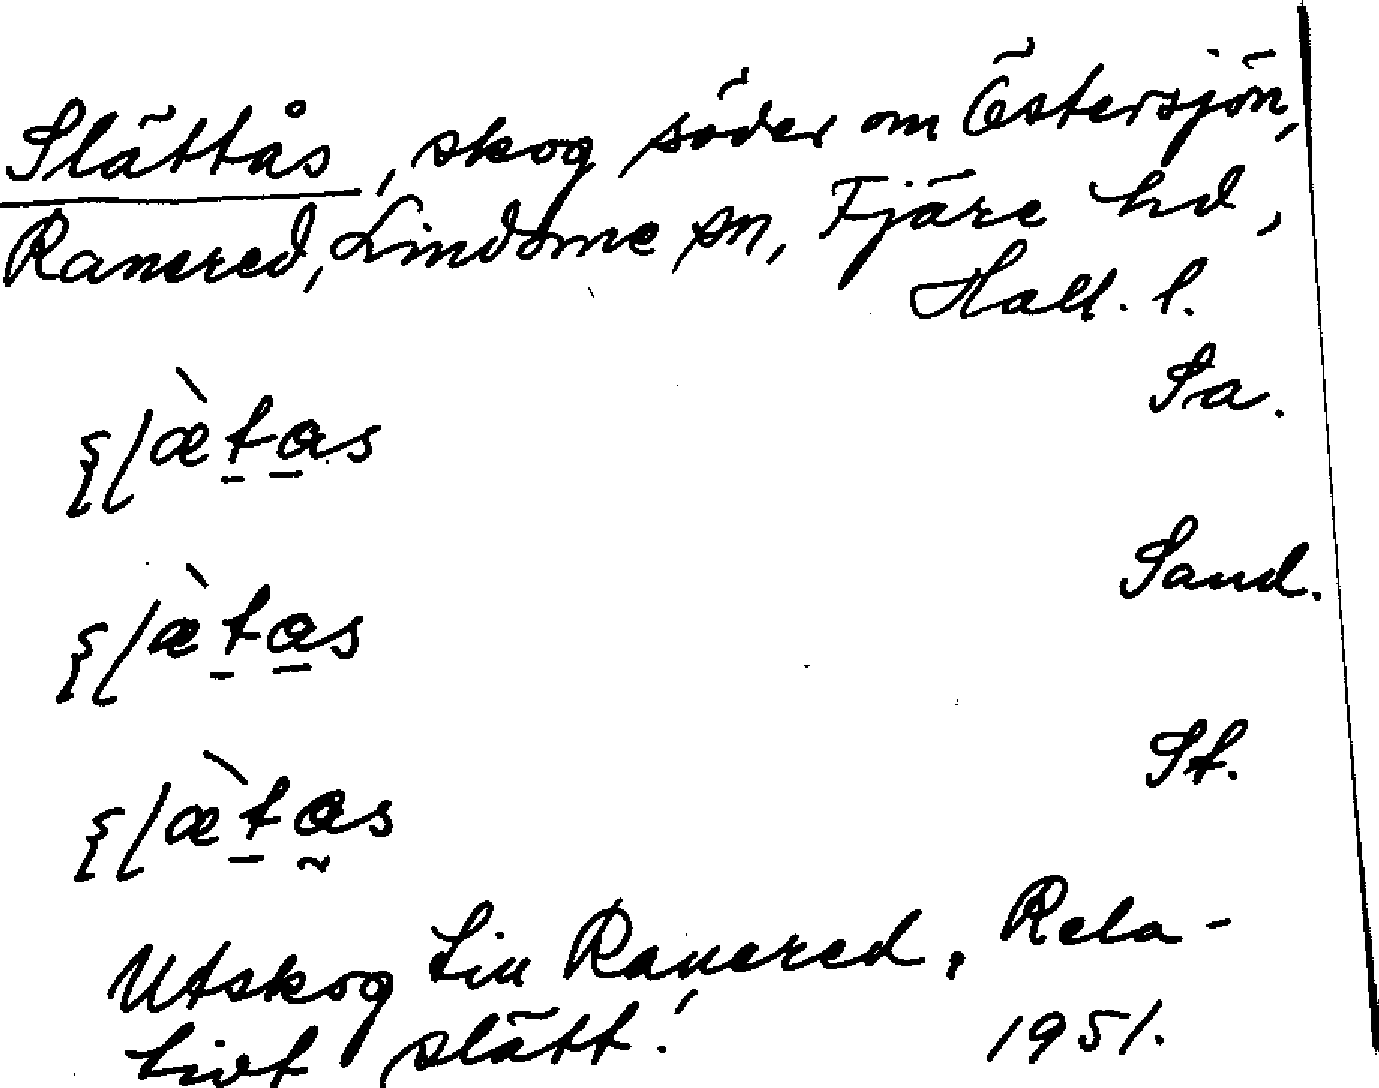 Slättås, skog söder om Östersjön,
Ranered, Lindome sn, Fjäre hd,
Hall. l.
Sa.
ʂlæ̀tas
Sand.
ʂlæ̀tas
St.
ʂlæ̀ta̰s
Utskog till Ranered. Rela-
tivt slätt! 1951.